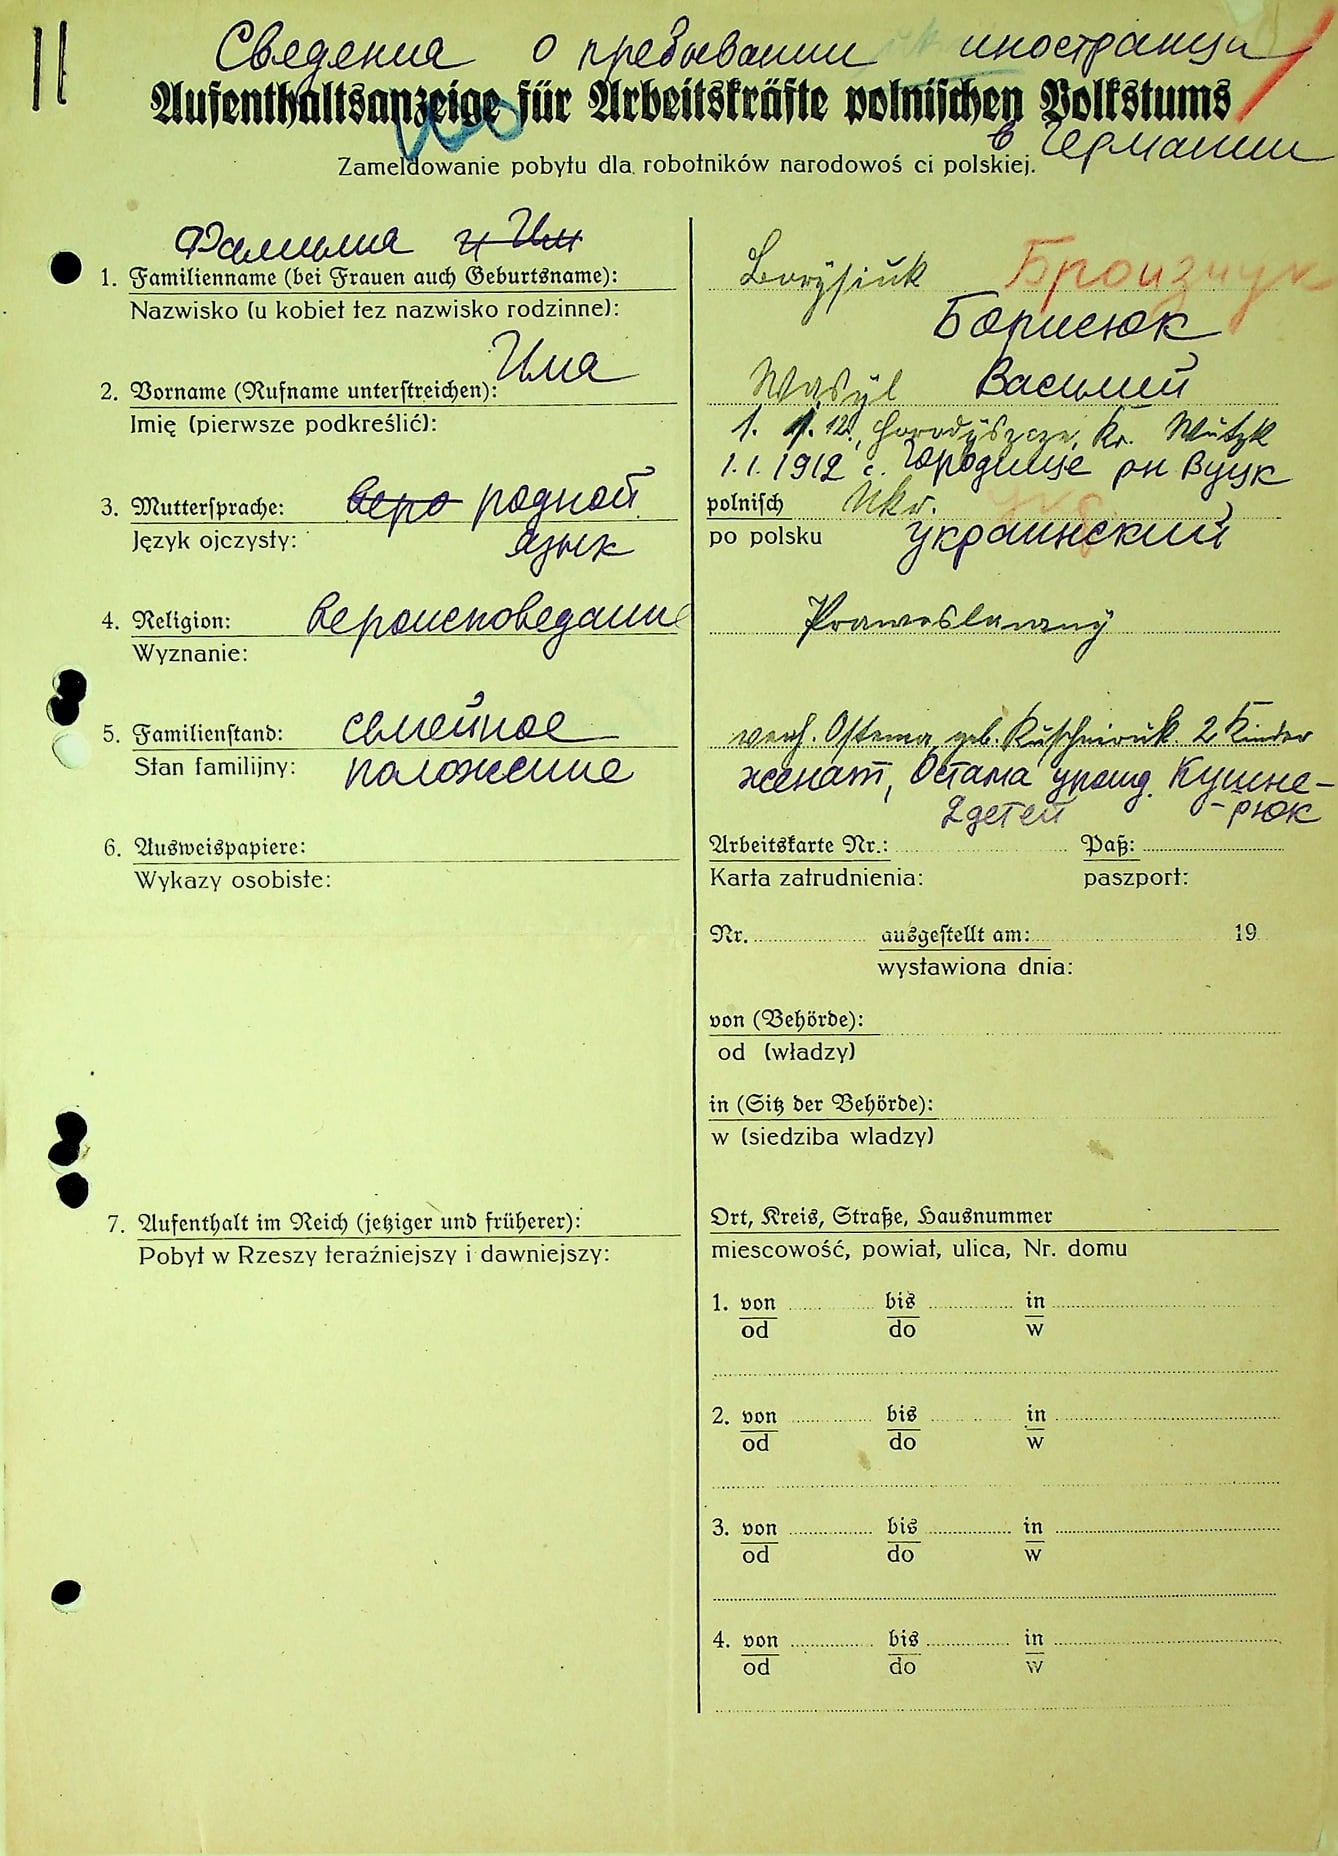 Сведения о пребывании иностранца
Aufenthaltsanzeige für Arbeitskräfte polnischen Volkstums
в Германии
Zameldowanie pobytu dla robotników narodowoś ci polskiej.
Фамилия и Им
1. Familienname (bei Frauen auch Geburtsname): Borysiuk
Nazwisko (u kobiet tez nazwisko rodzinne):
Борисюк
Имя
2. Vorname (Rufname unterstreichen): Wasyl Василий
Imię (pierwsze podkreślić): 1. 1. 12., Horodyszcze, Kr.
1.1.1912 с. Городище рн Вуцк
3. Muttersprache: веро родной polnisch Ukr. укр.
Język ojczysty: язык po polsku украинский
4. Religion: вероисповедание Prawoslawny
Wyznanie:
5. Familienstand: семейное verh. Ostema, geb. Kuschniruk 2 Kinder
Stan familijny: положение женат, Остама урожд. Кушне-
2 детей -рюк
6. Ausweispapiere: Arbeitskarte Nr.: Paß:
Wykazy osobiste: Karta zatrudnienia: paszport:
Nr. ausgestellt am: 19
wystawiona dnia:
von (Behörde):
od (władzy)
in (Sitz der Behörde):
w (siedziba wladzy)
7. Aufenthalt im Reich (jetziger und früherer): Ort, Kreis, Straße, Hausnummer
Pobyt w Rzeszy teraźniejszy i dawniejszy: miescowość, powiat, ulica, Nr. domu
1. von bis in
od do w
2. von bis in
od do w
3. von bis in
od do w
4. von bis in
od do w